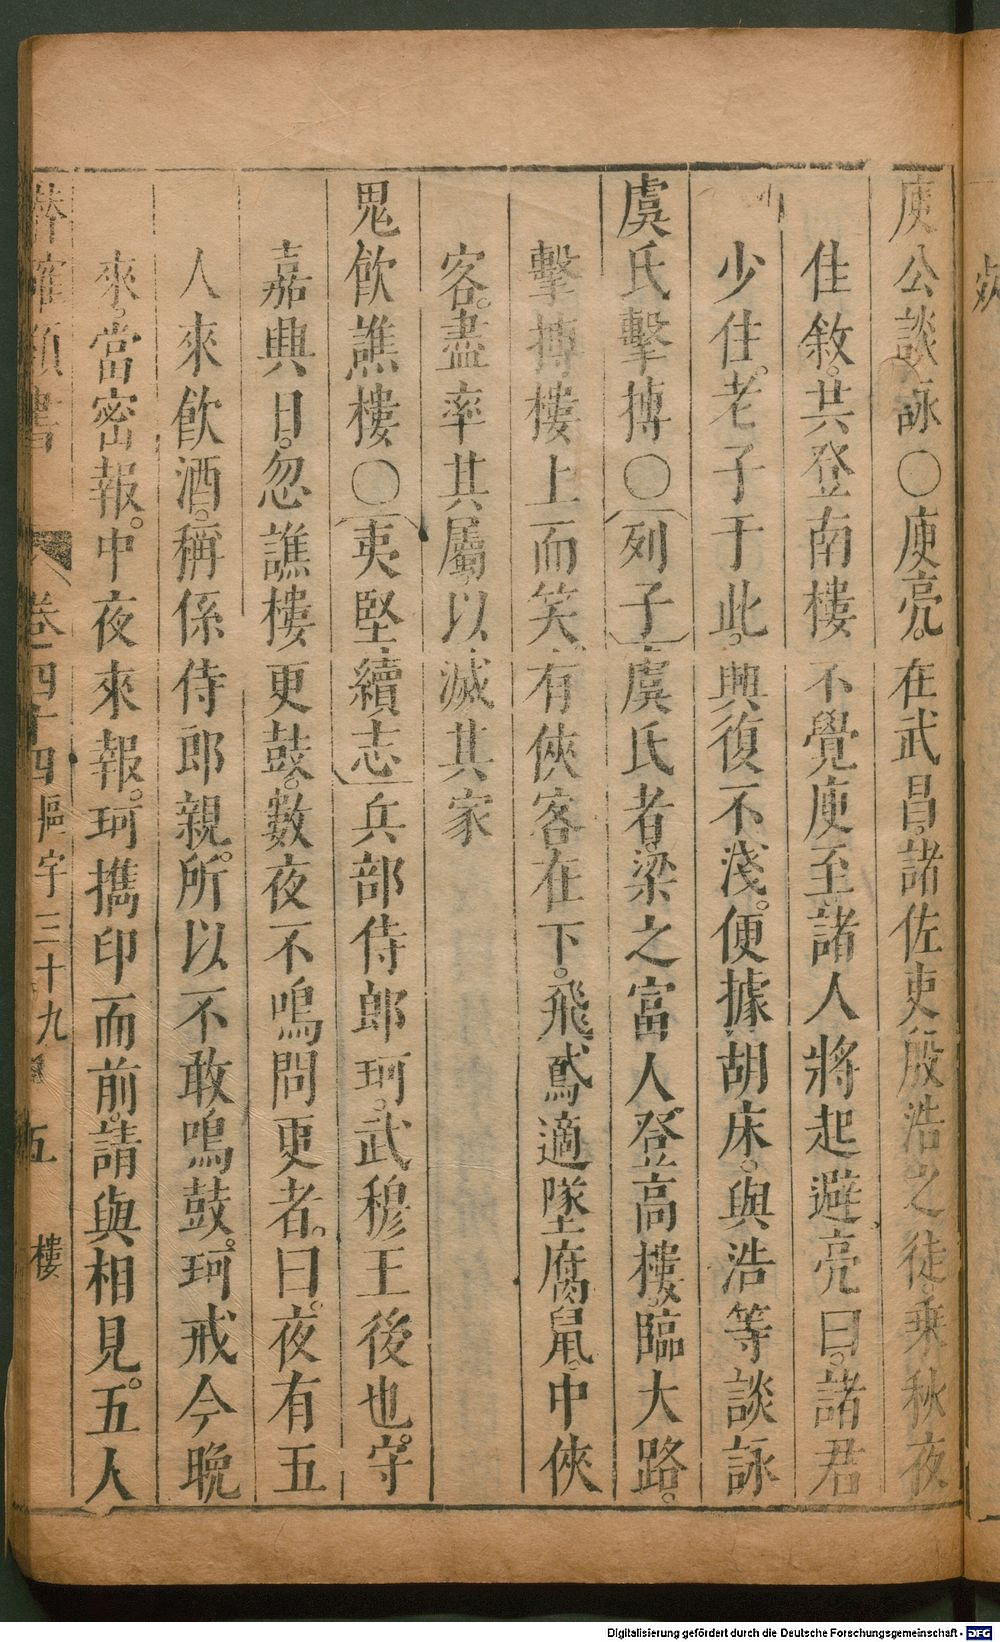 庾公談詠○庾亮。在武昌。諸佐吏殷浩之徒。乘秋夜
住敘。共登南樓不覺庾至諸人將起避亮曰。諸君
少住。老子于此。興復不淺。便據胡床。與浩等談詠
虞氏擊摶○列子虞氏者梁之富人登高樓。臨大路。
擊摶樓上而笑有俠客在下。飛鳶適墜腐鼠。中俠
客。盡率其屬以滅其家
鬼飲譙樓○夷堅續志兵部侍郎珂。武穆王後也。守
嘉興日。忽譙樓更鼓。數夜不鳴問更者。曰。夜有五
人來飲酒。稱係侍郎親。所以不敢鳴鼓。珂戒今晚
來。當密報。中夜來報。珂攜印而前。請與相見。五人
類書 卷四十四 樞字三十九 五 樓
Digitalisierung gefördert durch die Deutsche Forschungsgemeinschaft - DFG